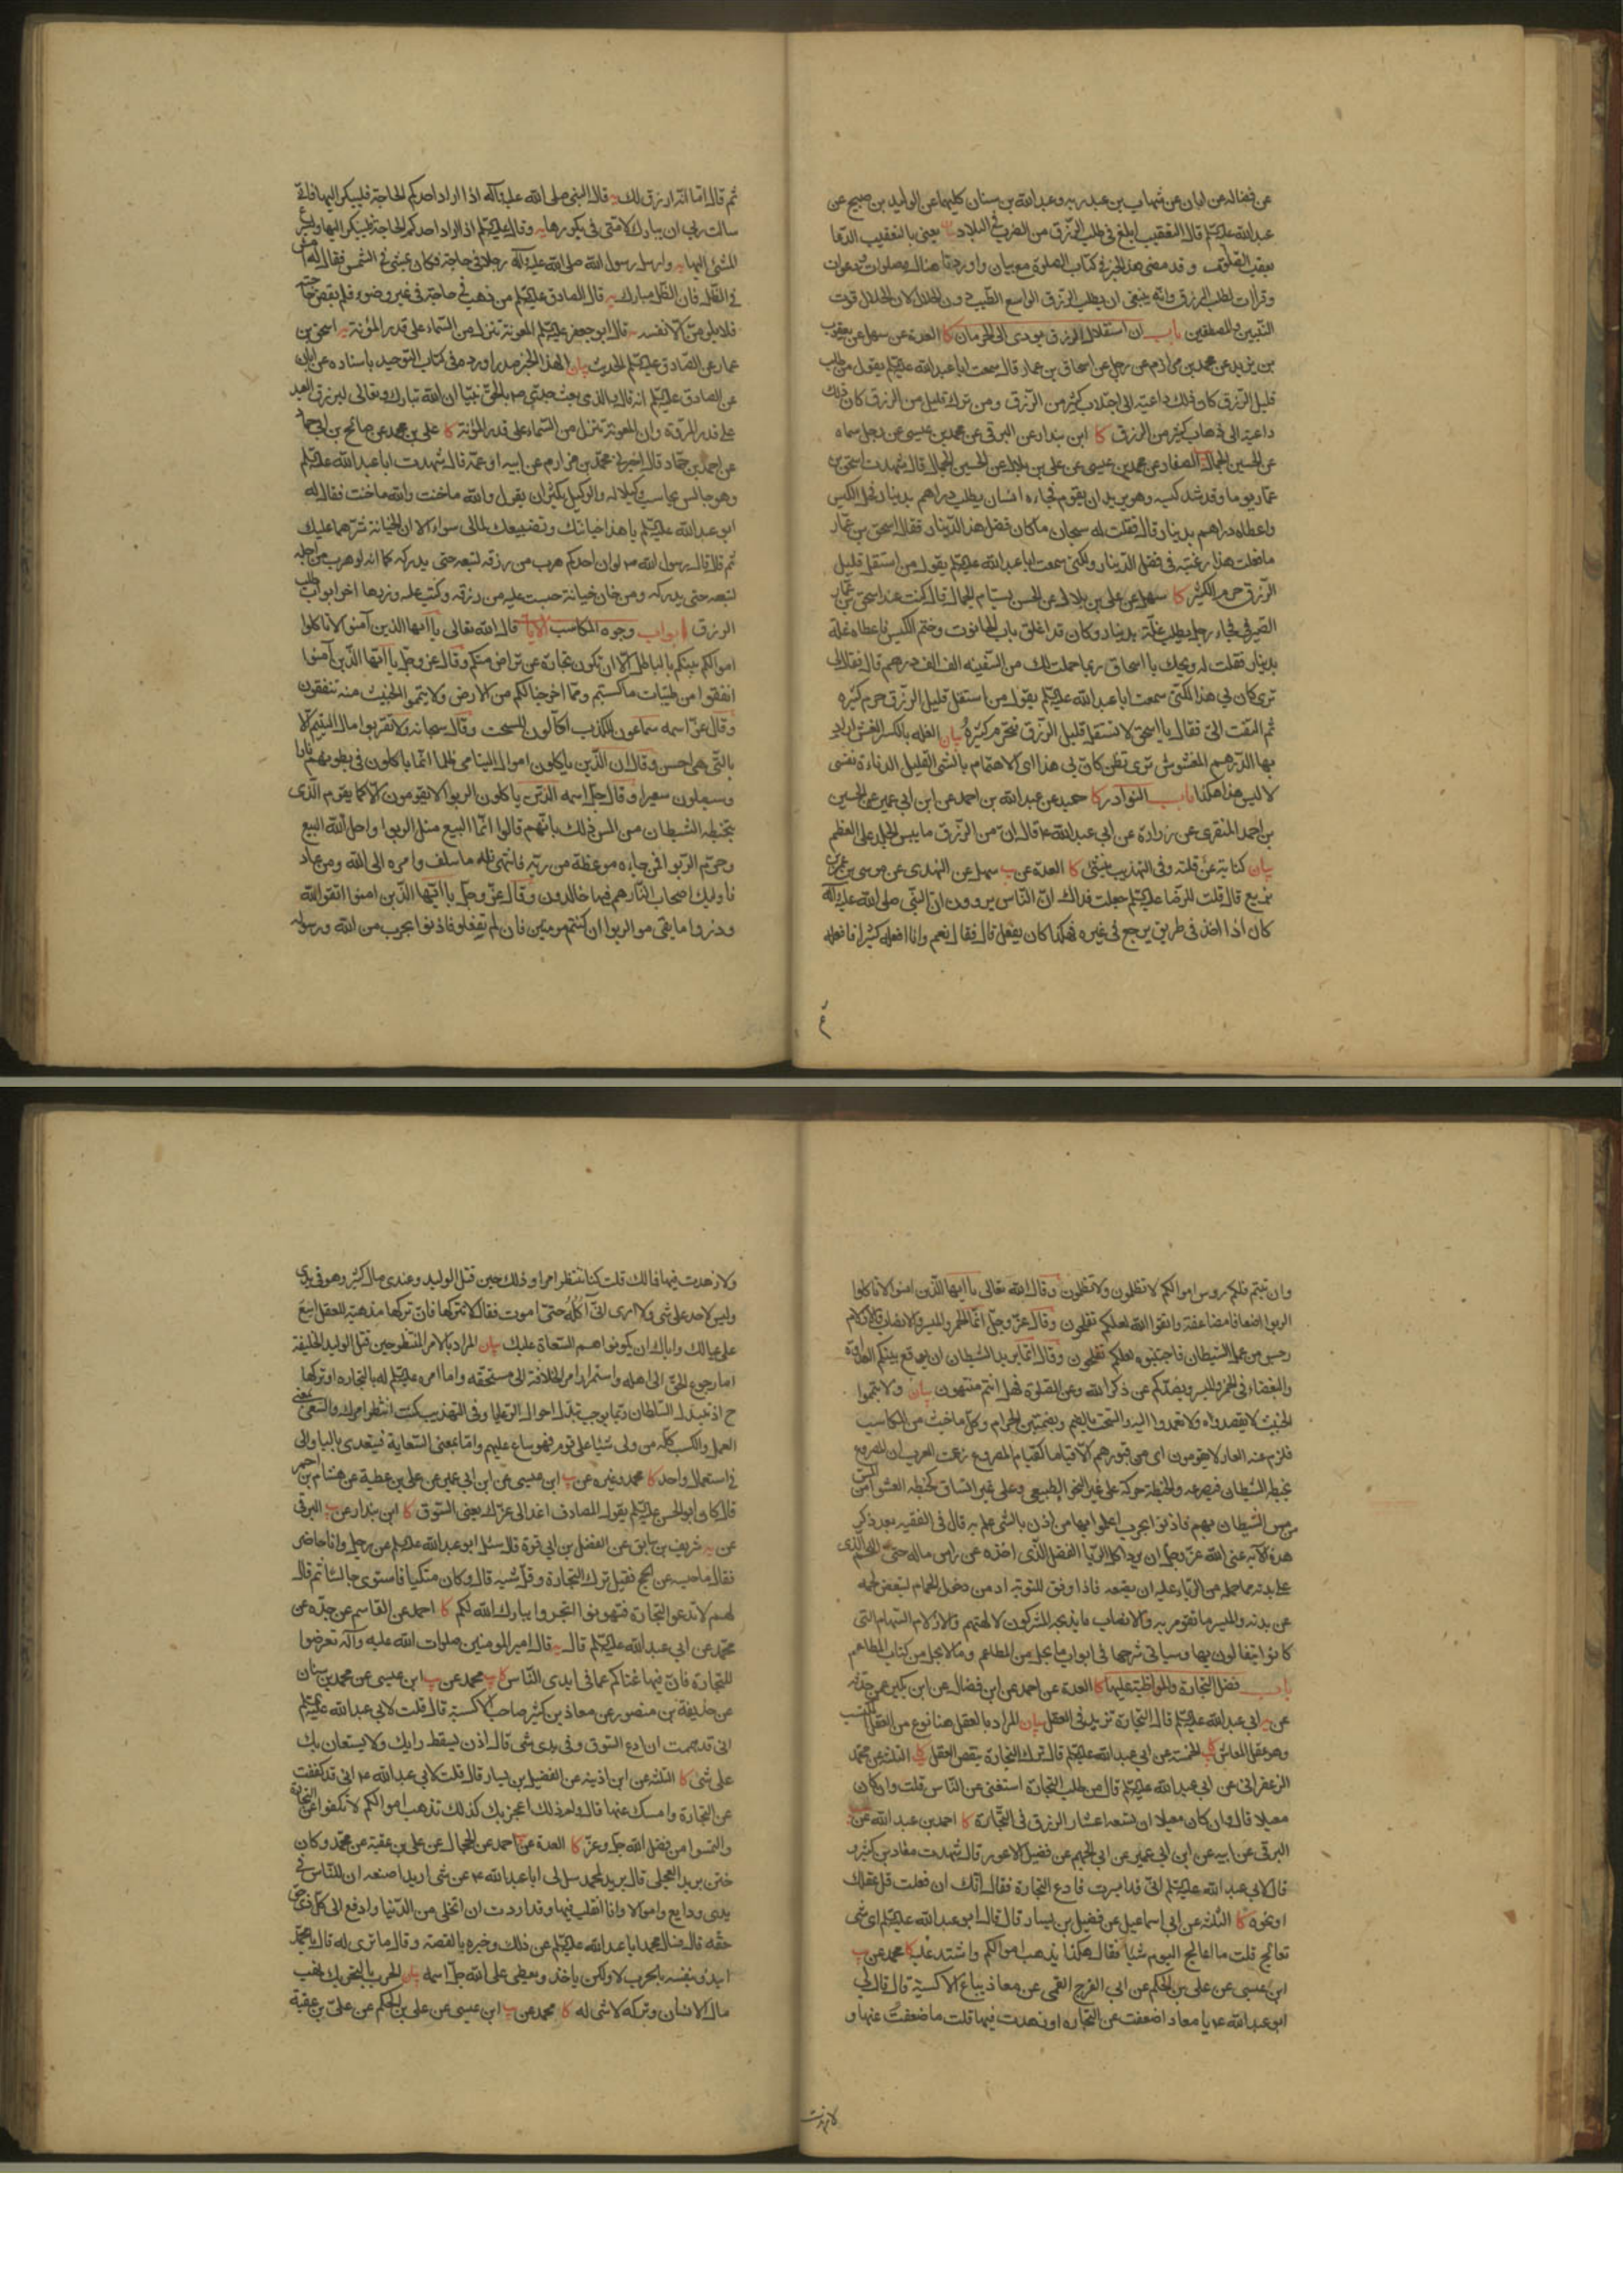 عن فضاله عن ابان عن شهاب بن عبد ربه وعبد الله بن سنان كليهما عن الوليد بن صبيح عن
عبد الله عليكم قال التعقيب ابلغ فى طلب الرزق من الضرب فى البلاد بيان يعنى بالتعقيب الدعا
بعقب الصلوة وقد مضى هذا الخبر فى كتاب الصلوة مع بيان واوردنا هناك صلوات ودعوات
وقراات لطلب الرزق وانه ينبغى ان يطلب الرزق الواسع الطيب دون الحلال لان الحلال قوت
النبيين والمصطفين باب ان استقلال الرزق يودى الى الحرمان كا العدة عن سهل عن يعقوب
بن يزيد عن محمد بن مرازم عن رجل عن اسحاق بن عمار قال سمعت ابا عبد الله عليكم يقول من طلب
قليل الرزق كان ذلك داعيته الى اجتلاب كثير من الرزق ومن ترك قليل من الرزق كان ذلك
داعيته الى ذهاب كثير من الرزق كا ابن بندار عن البرقى عن محمد بن عيسى عن رجل سماه
عن الحسين الجمال الصفار عن محمد بن عيسى عن على بن بلال عن الحسين الجمال قال شهدت اسحق بن
عمار يوما وقد شد كيسه وهو يريد ان يقوم فجاءه انسان يطلب دراهم بدينار فحل الكيس
واعطاه دراهم بدينار قال فقلت له سبحان ما كان فضل هذا الدينار فقال اسحق بن عمار
ما فعلت هذا رغبته فى فضل الدينار ولكنى سمعت ابا عبد الله عليكم يقول من استقل قليل
الرزق حرم الكثير كا سهل عن على بن بلال عن الحسن بسام الجمال قال كنت عند اسحق بن عمار
الصيرفى فجاء رجل يطلب غلة بدينار وكان قد اغلق باب الحانوت وختم الكيس فاعطاه غلة
بدينار فقلت له ويحك يا اسحاق ربما حملت لك من السفينه الف الف درهم قال فقال لى
ترى كان بى هذا لكنى سمعت ابا عبد الله عليكم يقول من استقل قليل الرزق حرم كثيره
ثم التفت الى فقال يا اسحق لا تستقل قليل الرزق فتحرم كثيره بيان الغله بالكسر الغش اراد
بها الدرهم المغشوش ترى تظن كان بى هذا اى الاهتمام بالشى القليل الدناءة نفسى
لا ليس هذا هكذا باب النوادر كا حميد عن عبد الله بن احمد عن ابن ابى عمير عن الحسين
بن احمد المنقرى عن زرارة عن ابى عبد الله ع قال ان من الرزق ما يبس الجلد على العظم
بيان كناية عن قلته وفى التهذيب كا العدة عن سهل عن النهدى عن موسى بن عمر بن
بزيع قال قلت للرضا عليكم جعلت فداك ان الناس يروون ان النبى صلى الله عليه وآله
كان اذا اخذ فى طريق رجع فى غيره فهكذا كان يفعل قال فقال نعم وانا افعله كثيرا فافعله
ثم قال اما انه ارزق لك يه قال النبى صلى الله عليه وآله اذا اراد احدكم الحاجة فليبكر اليها فانى
سالت ربى ان يبارك لامتى فى بكورها يه وقال عليكم اذا اراد احدكم الحاجة فليبكر اليها وليسرع
المشى اليها يه وارسل رسول الله صلى الله عليه وآله رجلا فى حاجة فكان يمشى فى الشمس فقال له امش
فى الظل فان الظل مبارك يه قال الصادق عليكم من ذهب فى حاجة فى غير وضوء فلم تقض حاجته
فلا يلومن الا نفسه يه قال ابو جعفر عليكم المعونة تنزل من السماء على قدر المؤنة يه اسحق بن
عمار عن الصادق عليكم الحديث بيان لهذا الخبر صدر اورده فى كتاب التوحيد باسناده عن ابان
عن الصادق عليكم انه قال والذى بعث جدى ص بالحق نبيا ان الله تبارك وتعالى ليرزق العبد
على قدر المروة وان المعونة تنزل من السماء على قدر المؤنة كا على بن محمد عن صالح بن ابى حماد
عن احمد بن حماد قال اخبرنى محمد بن مرازم عن ابيه او عمه قال شهدت ابا عبد الله عليكم
وهو جالس يحاسب وكيلا له والوكيل يكثر ان يقول والله ما خنت والله ما خنت فقال له
ابو عبد الله عليكم يا هذا خيانتك وتضييعك لمالى سواء الا ان الخيانة شرهما عليك
ثم قال قال رسول الله ص لو ان احدكم هرب من رزقه لتبعه حتى يدركه كما انه لو هرب من اجله
لتبعه حتى يدركه ومن خان خيانة حسبت عليه من رزقه وكتب عليه وزرها اخر ابواب طلب
الرزق ابواب وجوه المكاسب الآيات قال الله تعالى يا ايها الذين آمنوا لا تاكلوا
اموالكم بينكم بالباطل الا ان تكون تجارة عن تراض منكم وقال عز وجل يا ايها الذين آمنوا
انفقوا من طيبات ما كسبتم ومما اخرجنا لكم من الارض ولا تيمموا الخبيث منه تنفقون
وقال عز اسمه سماعون للكذب اكالون للسحت وقال سبحانه ولا تقربوا مال اليتيم الا
بالتى هى احسن وقال ان الذين ياكلون اموال اليتامى ظلما انما ياكلون فى بطونهم نارا
وسيصلون سعيرا وقال جل اسمه الذين ياكلون الربوا لا يقومون الا كما يقوم الذى
يتخبطه الشيطان من المس ذلك بانهم قالوا انما البيع مثل الربوا واحل الله البيع
وحرم الربوا فمن جاءه موعظة من ربه فانتهى فله ما سلف وامره الى الله ومن عاد
فاولئك اصحاب النار هم فيها خالدون وقال عز وجل يا ايها الذين امنوا اتقوا الله
وذروا ما بقى من الربوا ان كنتم مومنين فان لم تفعلوا فاذنوا بحرب من الله ورسوله
وان تبتم فلكم روس اموالكم لا تظلمون ولا تظلمون وقال الله تعالى يا ايها الذين امنوا لا تاكلوا
الربوا اضعافا مضاعفة واتقوا الله لعلكم تفلحون وقال عز وجل انما الخمر والميسر والانصاب والازلام
رجس من عمل الشيطان فاجتنبوه لعلكم تفلحون وقال انما يريد الشيطان ان يوقع بينكم العداوة
والبغضاء فى الخمر والميسر ويصدكم عن ذكر الله وعن الصلوة فهل انتم منتهون بيان ولا تيمموا
الخبيث لا تقصدوا ولا تعمدوا اليه والسحت بالضم وبضمتين الحرام وكل ما خبث من المكاسب
فلزم عنه العار لا يقومون اى من قبورهم الا قياما كقيام المصروع زعمت العرب ان المصروع
يخبطه الشيطان فيصرعه والخبطة حركة على غير النحو الطبيعى وعلى غير اتساق كخبطه العشوا من المس
من مس الشيطان بهم فاذنوا بحرب اعلموا بها من اذن بالشى علم به قال فى الفقيه بعد ذكر
هذه الآيه عنى الله عز وجل ان يرد اكل الربا الفضل الذى اخذه عن راس ماله حتى اللحم الذى
على بدنه مما حمله من الربا عليه ان يضعه فاذا وفق للتوبة ادمن دخول الحمام لينقص لحمه
عن بدنه والميسر ما تقومر به والانصاب ما يذبحه المشركون لالهتهم والازلام السهام التى
كانوا يتفالون بها وسياتى شرحها فى ابواب ما يحل من المطاعم وما لا يحل من كتاب المطاعم
باب فضل التجارة والمواظبة عليها كا العدة عن احمد عن ابن فضال عن ابن بكير عمن حدثه
عن ابى عبد الله عليكم قال التجارة تزيد فى العقل بيان المراد بالعقل هنا نوع من العقل المكتسب
وهو عقل المعاش كا الخمسة عن ابى عبد الله عليكم قال ترك التجارة ينقص العقل كا الثلثة عن محمد
الزعفرانى عن ابى عبد الله عليكم قال من طلب التجارة استغنى عن الناس قلت وان كان
معيلا قال وان كان معيلا ان تسعه اعشار الرزق فى التجارة كا احمد بن عبد الله عن
البرقى عن ابيه عن ابن ابى عمير عن ابى الجهم عن فضيل الاعور قال شهدت معاذ بن كثير و
قال لابى عبد الله عليكم انى قد ايسرت فادع التجارة فقال انك ان فعلت قل عقلك
او نحوه كا الثلثة عن ابى اسماعيل عن فضيل بن يسار قال قال ابو عبد الله عليكم اى شى
تعالج قلت ما اعالج اليوم شيا فقال هكذا يذهب اموالكم واشتد عليه كا محمد عن
ابن عيسى عن على بن الحكم عن ابى الفرج القمى عن معاذ بياع الاكسية قال قال لى
ابو عبد الله ع يا معاذ اضعفت عن التجارة او زهدت فيها قلت ما ضعفت عنها و
لا زهدت
ولا زهدت فيها قال فما لك قلت كنا ننتظر امرا وذلك حين قتل الوليد وعندى مال كثير وهو فى يدى
وليس لاحد على شى ولا ارى انى آكله حتى اموت فقال لا تتركها فان تركها مذهبة للعقل اسع
على عيالك واياك ان يكونوا هم السعاة عليك بيان المراد بالامر المنتظر حين قتل الوليد الخليفة
اما رجوع الحق الى اهله واستمرار امر الخلافة الى مستحقه واما امره عليكم له بالتجاره او تركها
ح اذ تبدل السلطان ربما يوجب تبدل احوال الرعايا وفى التهذيب كنت انتظر امرك والسعى بمعنى
العمل والكسب كله من ولى شيئا على قوم فهو ساع عليهم واما بمعنى السعاية فيتعدى بالبا والى
فى استعمال واحد كا محمد وغيره عن ابن عيسى عن ابن ابى عمير عن على بن عطية عن هشام بن احمر
قال كان ابو الحسن عليكم يقول لمصادف اغد الى عزك يعنى السوق كا ابن بندار عن البرقى
عن شريف بن سابق عن الفضل بن ابى قرة قال سئل ابو عبد الله عليكم عن رجل وانا حاضر
فقال ما حبسه عن الحج فقيل ترك التجارة وقل شيه قال وكان متكيا فاستوى جالسا ثم قال
لهم لا تدعوا التجارة فتهونوا اتجروا يبارك الله لكم كا احمد عن القاسم عن جده عن
محمد عن ابى عبد الله عليكم قال قال امير المومنين صلوات الله عليه وآله تعرضوا
للتجارة فان فيها غناكم عما فى ايدى الناس كا محمد عن ابن عيسى عن محمد بن سنان
عن حذيفة بن منصور عن معاذ بن كثير صاحب الاكسية قال قلت لابى عبد الله عليكم
انى قد هممت ان ادع السوق وفى يدى شى قال اذن يسقط رايك ولا يستعان بك
على شى كا الثلثه عن ابن اذينه عن الفضيل بن يسار قال قلت لابى عبد الله ع انى قد كففت
عن التجارة وامسكت عنها قال ولم ذلك اعجز بك كذلك تذهب اموالكم لا تكفوا عن التجارة
والتمسوا من فضل الله جل وعز كا العدة عن احمد عن الحجال عن على بن عقبة عن محمد وكان
ختن بريد العجلى قال بريد لمحمد سل لى ابا عبد الله ع عن شى اريد اصنعه ان للناس فى
يدى ودايع واموالا وانا اتقلب فيها وقد اردت ان اتخلى من الدنيا وادفع الى كل ذى حق
حقه قال فسال محمد ابا عبد الله عليكم عن ذلك وخبره بالقصة وقال ما ترى له قال يا محمد
ايبدو نفسه بالحرب لا ولكن ياخذ ويعطى على الله جل اسمه بيان الحرب بالتحريك نهب
مال الانسان وتركه لا شى له كا محمد عن ابن عيسى عن على بن الحكم عن على بن عقبة